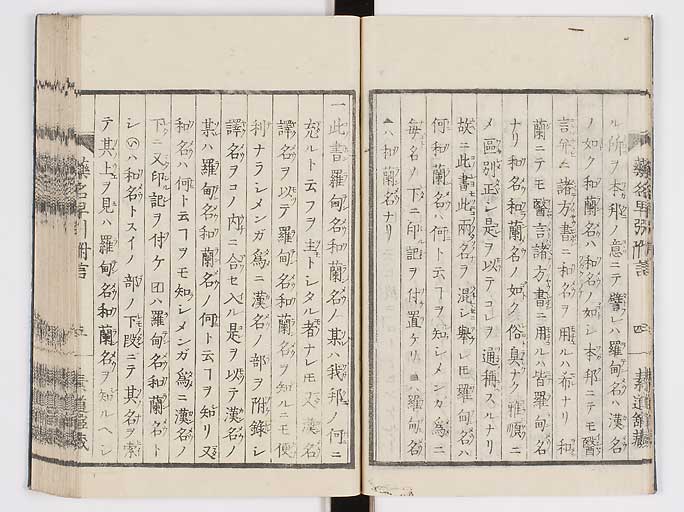 ル所ヲ本邦ノ意ニテ譬レハ羅甸名ハ漢名
ノ如ク和蘭名ハ和名ノ如シ本邦ニテモ醫
言並ニ諸方書ニ和名ヲ用ルハ希ナリ 和
蘭ニテモ醫言諸方書ニ用ルハ皆羅甸名
ナリ和名和蘭名ノ如ク俗臭ナク雅順ニ
メ區別正シ是ヲ以テコレヲ通稱スルナリ
故ニ此書此両名ヲ混シ擧レモ羅甸名ハ
何和蘭名ハ何ト云フヿヲ知シメンガ爲ニ
毎名ノ下ニ印記ヲ付置ケリ ハ羅甸名
ハ和蘭名ナリ
藥名早引附言 四 素道館藏
一此書羅甸名和蘭名ノ某ハ我邦ノ何ニ
充ルト云フヲ主トシタル者ナレモ又漢名
譯名ヲ以テ羅甸名和蘭名ヲ知ルニモ便
利ナラシメンガ爲ニ漢名ノ部ヲ附錄シ
譯名ヲコノ内ニ合セ入ル是ヲ以テ漢名ノ
某ハ羅甸名和蘭名ノ何ト云フヿヲ知リ又
和名ハ何ト云フヿヲモ知シメンガ爲ニ漢名ノ
下ニ又印記ヲ付ケ ハ羅甸名和蘭名ト
シ ハ和名トスイノ部ノ下段ニテ其名ヲ索
テ其上ヲ見ハ羅甸名和蘭名ヲ知ルヘシ
藥名早引附言 五